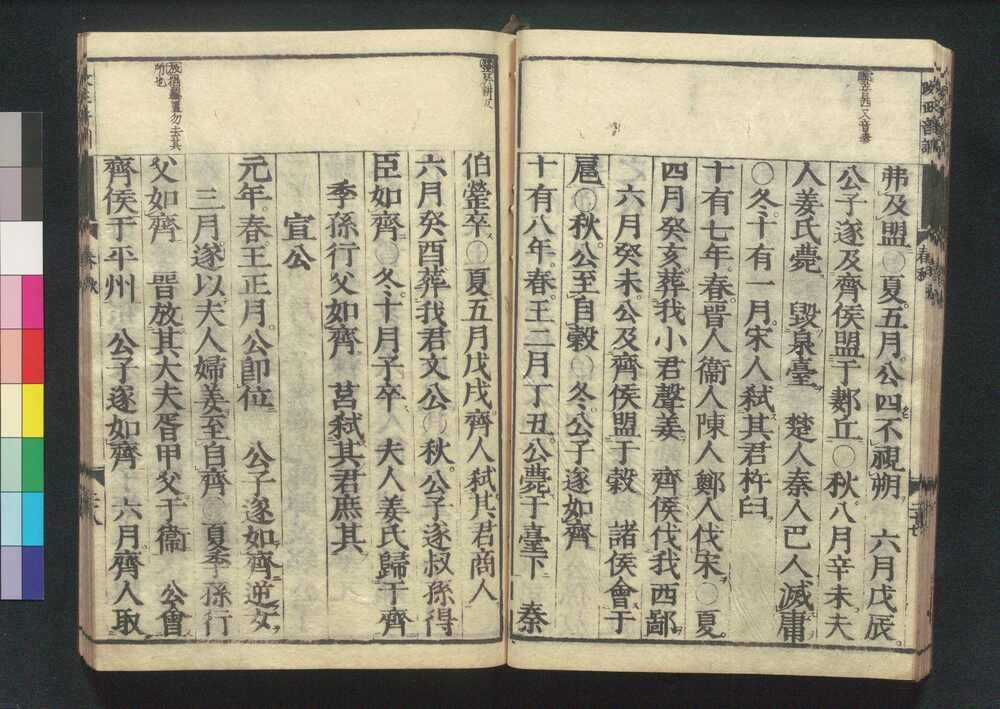 弗及盟○夏五月公四不視朔　六月戊辰
公子遂及齊侯盟于郪丘○秋八月辛未夫
人姜氏薨　毀泉臺　楚人秦人巴人滅庸
○冬十有一月宋人弑其君杵臼
十有七年春晉人衞人陳人鄭人伐宋○夏
四月癸亥葬我小君聲姜　齊侯伐我西鄙
六月癸未公及齊侯盟于穀　諸侯會于
扈○秋公至自穀○冬公子遂如齊
十有八年春王二月丁丑公薨于臺下　秦
伯罃卒○夏五月戊戌齊人弑其君商人
六月癸酉葬我君文公○秋公子遂叔孫得
臣如齊○冬十月子卒　夫人姜氏歸于齊
季孫行父如齊　莒弑其君庶其
宣公
元年春王正月公即位　公子遂如齊逆女
三月遂以夫人婦姜至自齊○夏季孫行
父如齊　晉放其大夫胥甲父于衞　公會
齊侯于平州　公子遂如齊　六月齊人取
春秋